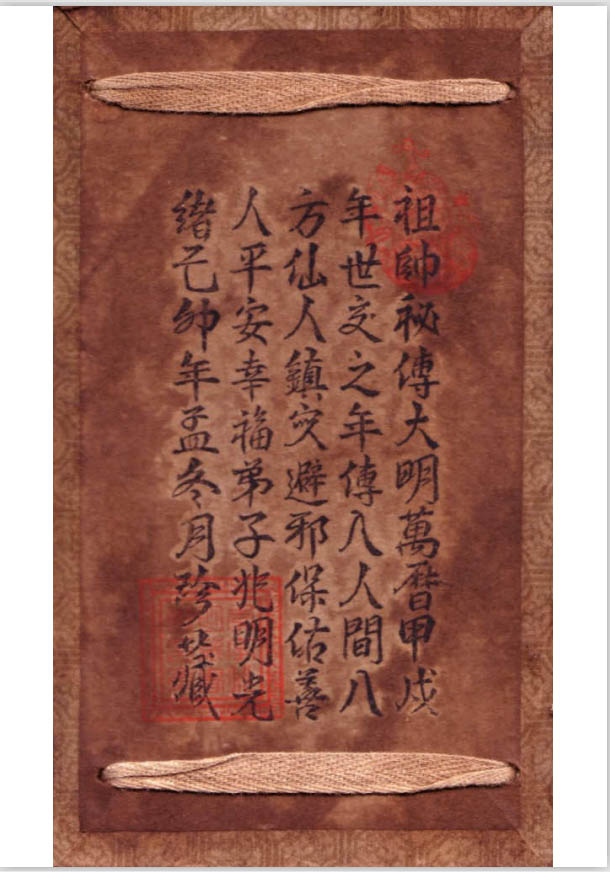 祖帥秘傳大明萬曆甲戌
年世交之年傳入人間八
方仙人鎮灾避邪保佑善
人平安幸福弟子兆明光
緒己卯年孟冬月珍藏